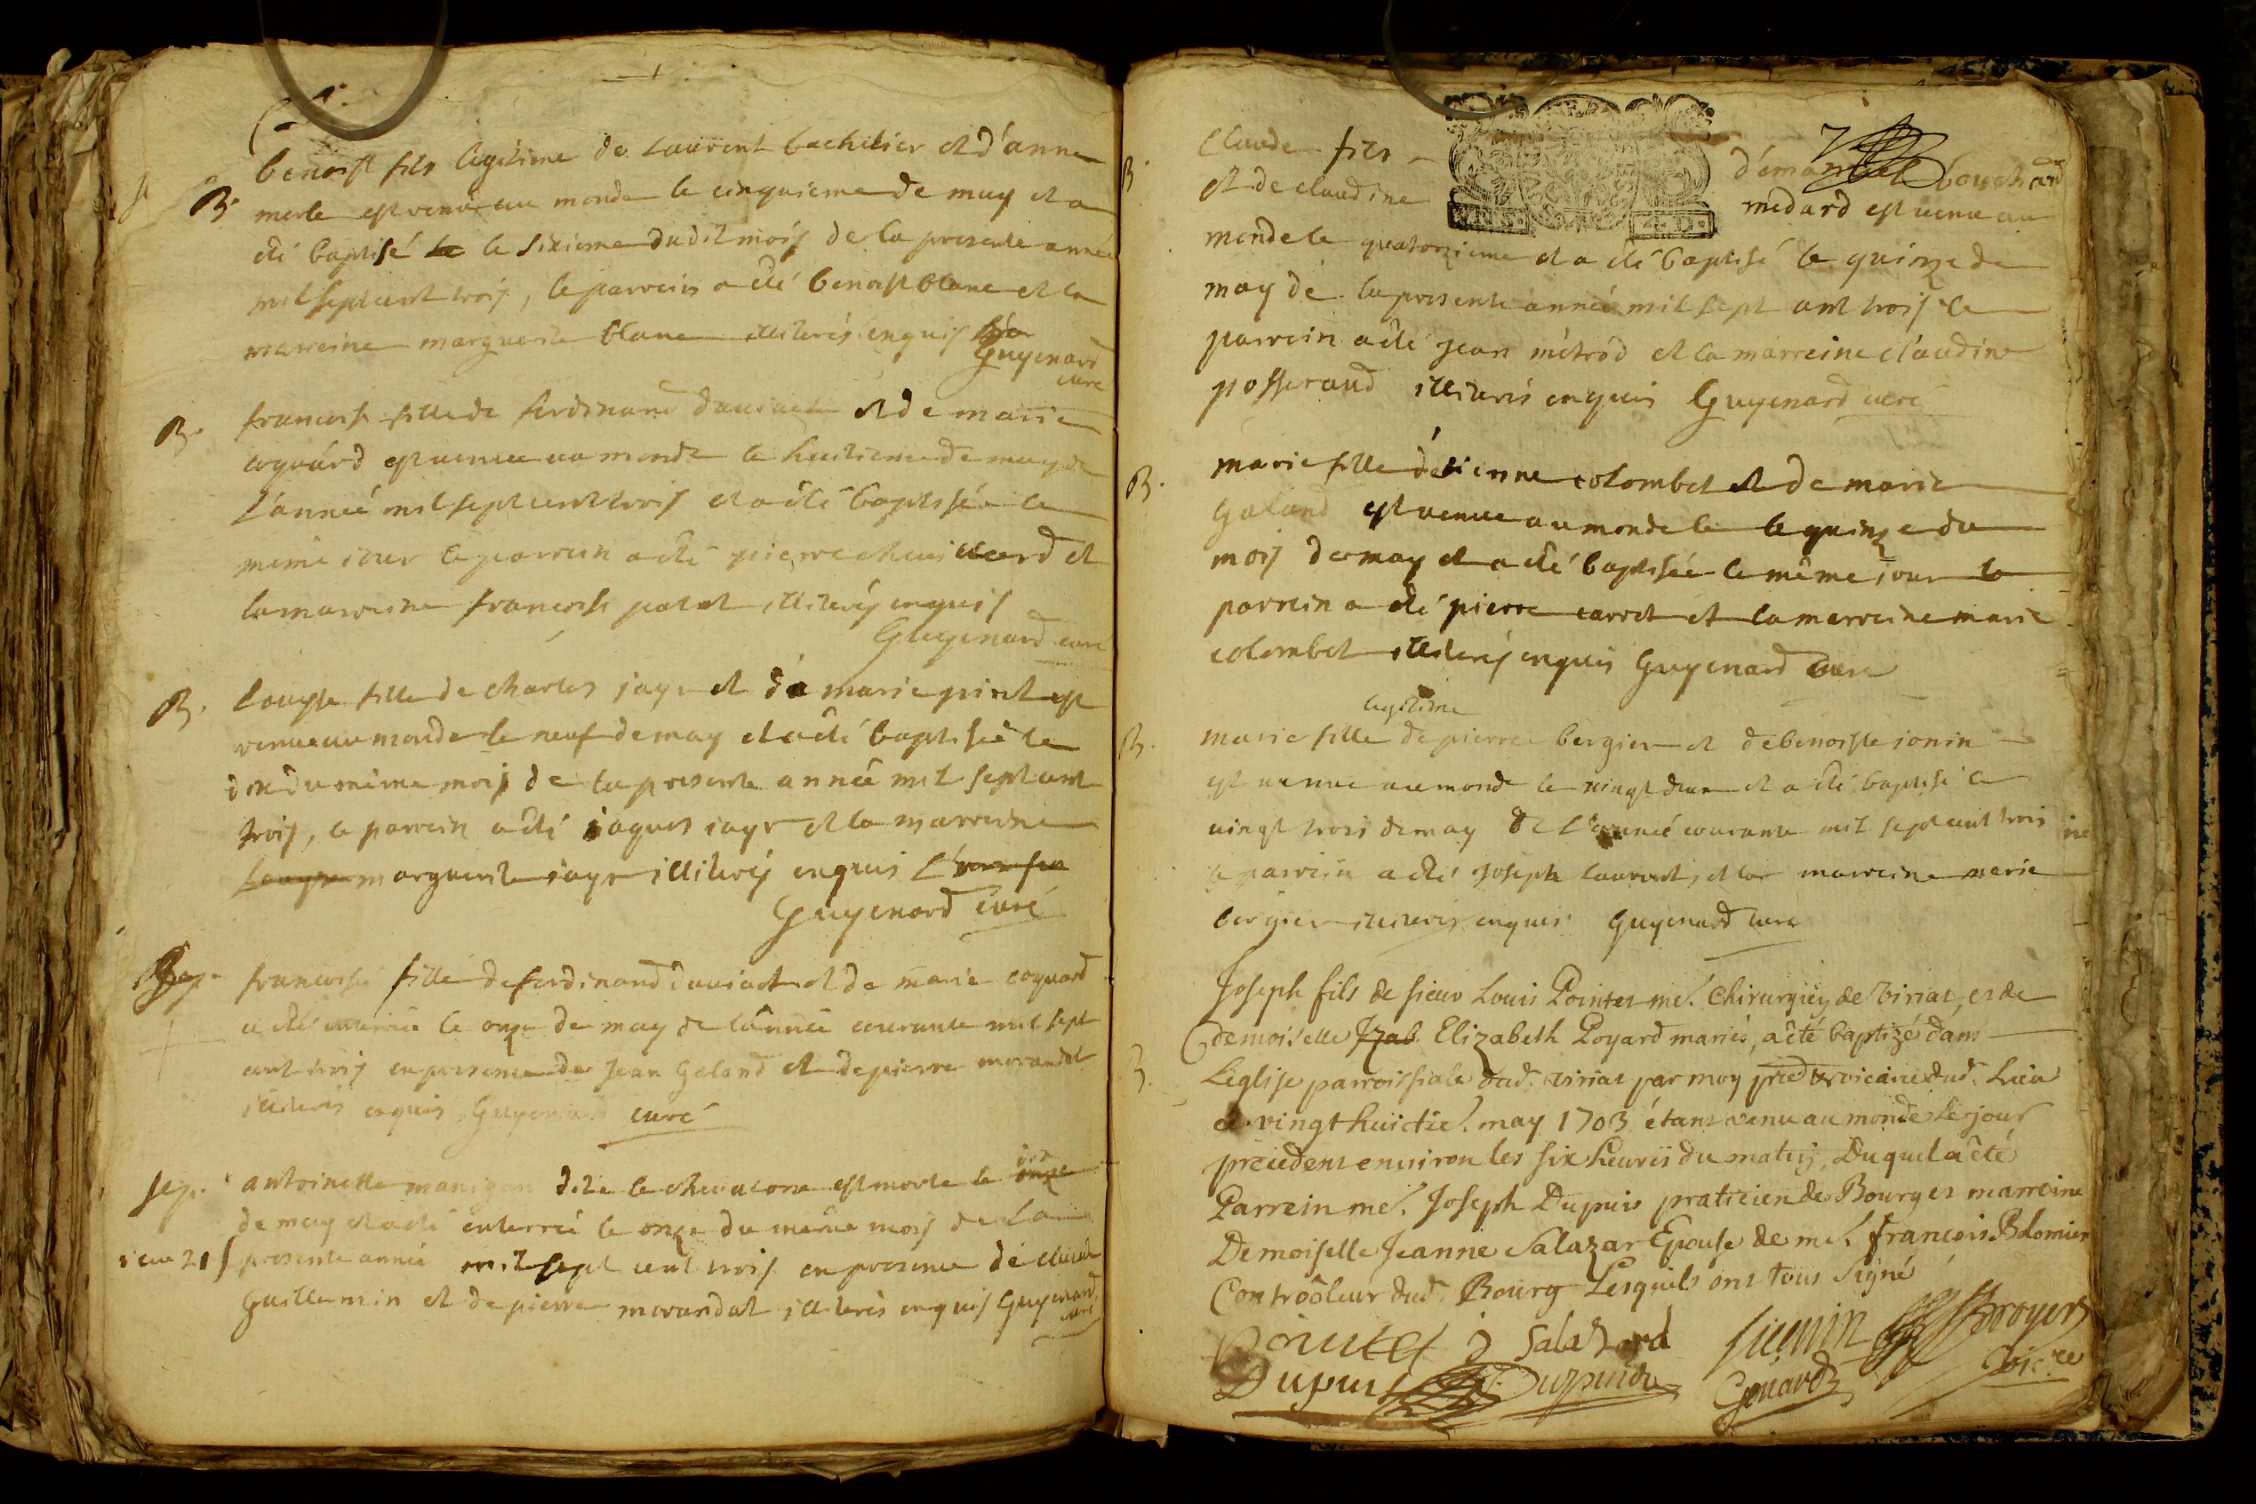 B. benoist fils legitime de Laurent bachelier et d'anne
merle est venu au monde le cinquieme de may et a
eté baptisé le sixieme dudit mois de la presente année
mil sept cent trois, le parrein a eté benoist blanc et la
marreine marguerite blanc illiterés enquis
Guyenard
curé
B. francoise fille de ferdinand daviact et de marie
coquard est venue au monde le huitieme de may de
L'année mil sept cent trois et a eté baptisée le
même iour le parrein a eté pierre chevillard et
la marreine francoise patet illiterés enquis
Guyenard curé
B. Louyse fille de charles jayr et de marie piret est
venue au monde le neuf de may et a eté baptisée le
dix du même mois de la presente année mil sept cent
trois, le parrein a eté iaques iayr et la marreine
Louyse marguerite iayr illiterés enquis
Guyenard curé
Sep. francoise fille de ferdinand daviact et de marie coquard
a eté enterrée le onze de may de l'année courante mil sept
cent trois en presence de Jean Galand et de pierre morandat
illiterés enquis Guyenard curé
Sep. antoinette manigan dite la est morte le onze dix
de may et a eté enterrée le onze du même mois de La
presente année mil sept cent trois en presence de claude
Guillemin et de pierre morandat illiterés enquis Guyenard
curé
B. Claude fils d'émanuel bouchard
et de claudine medard est venu au
monde le quatorzieme et a eté baptisé le quinze de
may de la presente année mil sept cent trois le
parrein a eté jean métrod et la marreine claudine
posserand illiterés enquis Guyenard curé
B. marie fille d'étienne colombet et de marie
Galand est venue au monde le le quinze du
mois de may et a eté baptisée le même iour le
parrein a eté pierre carret et la marreine marie
colombet illiterés enquis Guyenard curé
legitime
B. marie fille de pierre bergier et de benoiste ionin
est venue au monde le vingt deux et a eté baptisé le
vingt trois de may de l'année courante mil sept cent trois
le parrein a eté Joseph laurent, et la marreine marie
bergier illiterés enquis Guyenard curé
Joseph fils de sieur Louis Pointet me. Chirurgien de Viriat, et de
demoiselle Izab Elizabeth Poyard mariés, a êté baptizé dans
B. L'église parroissiale dud. viriat par moy vicaire dud. Lieu
le vingt huictie. may 1703 étant venu au monde le jour
precedent environ les six heures du matin, Duquel a êté
Parrein me. Joseph Dupuis praticien de Bourg et marreine
Demoiselle Jeanne Salazar Epouse de me. françois Blomier
Controôleur dud. Bourg Lesquels ont tous signé
Pointet j Salazard
Dupuis Dupuis Genard Broyer
vicre